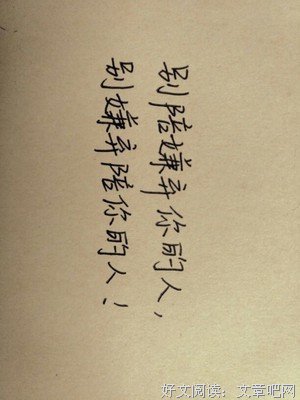 别陪嫌弃你的人，
别嫌弃陪你的人！
好文阅读：文章吧网